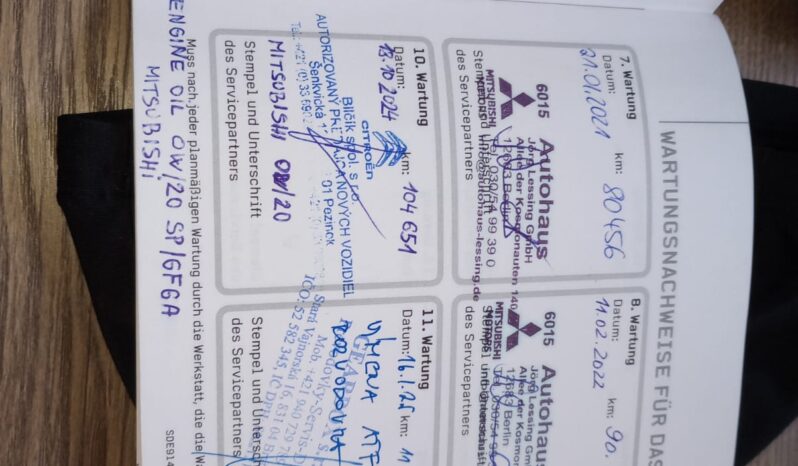 WARTUNGSNACHWEISE FÜR DAS
7. Wartung
Datum: km:
21.01.2021 80456
6015
Autohaus
Jörg Lessing GmbH
Allee der Kosmonauten 140
12683 Berlin
Tel. 030/54 99 39 0
info@autohaus-lessing.de
MITSUBISHI
MOTORS
Stempel und Unterschrift
des Servicepartners
8. Wartung
Datum: km:
11.02.2022 90.
6015
Autohaus
Jörg Lessing Gm
Allee der Kosmon
12683 Berlin
Tel. 030/54 9
MITSUBISHI
MOTORS
Stempel und Unterschrift
des Servicepartners
10. Wartung
Datum: km:
18.10.2024 104651
CITROËN
Bílčik spol. s r.o.
AUTORIZOVANÝ PREDAJCA NOVÝCH VOZIDIEL
Šenkvická 1
01 Pezinok
MITSUBISHI 0W/20
Stempel und Unterschrift
des Servicepartners
11. Wartung
Datum: km:
VÝMENA ATF
ROZVODOVKA
Stará Vajnorská 16, 831 04 B
IČO: 52 582 345, IČ DPH
Stempel und Unterschrift
des Servicepartners
Muss nach jeder planmäßigen Wartung durch die Werkstatt, die die Wa
ENGINE OIL 0W/20 SP/GF6A
MITSUBISHI
SDE914